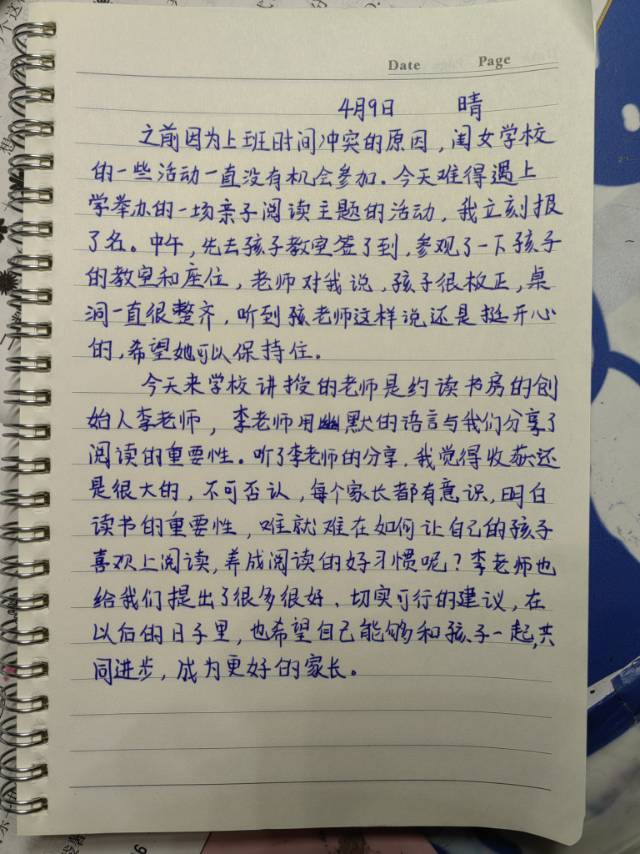 Date Page
4月9日 晴
之前因为上班时间冲突的原因,闺女学校
的一些活动一直没有机会参加。今天难得遇上
学举办的一场亲子阅读主题的活动,我立刻报
了名。中午,先去孩子教室签了到,参观了一下孩子
的教室和座位,老师对我说,孩子很板正,桌
洞一直很整齐,听到孩老师这样说还是挺开心
的,希望她可以保持住。
今天来学校讲授的老师是约读书房的创
始人李老师,李老师用幽默的语言与我们分享了
阅读的重要性。听了李老师的分享,我觉得收获还
是很大的,不可否认,每个家长都有意识,明白
读书的重要性,难就难在如何让自己的孩子
喜欢上阅读,养成阅读的好习惯呢?李老师也
给我们提出了很多很好、切实可行的建议,在
以后的日子里,也希望自己能够和孩子一起,共
同进步,成为更好的家长。